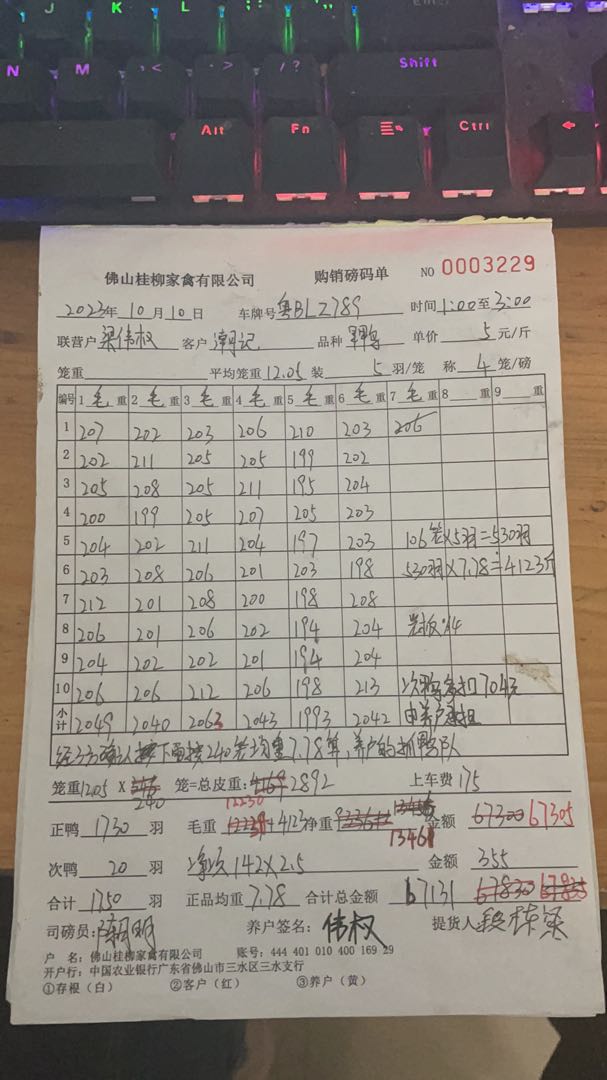 J K L : ; " '
N M , < . > / ? Shift
Alt Fn Ctrl ←
佛山桂柳家禽有限公司 购销磅码单 NO 0003229
2023年10月10日 车牌号粤BLZ789 时间1:00至3:00
联营户梁伟权 客户潮记 品种 单价5元/斤
笼重 平均笼重12.05装 5羽/笼 称4笼/磅
编号 1毛重 2毛重 3毛重 4毛重 5毛重 6毛重 7毛重 8重 9重
1 207 202 203 206 210 203 206
2 202 211 205 205 199 202
3 205 208 205 211 195 204
4 200 199 205 207 205 203
5 204 202 211 204 197 203 106笼×5羽=530羽
6 203 208 206 201 203 198 530羽×7.78=4123斤
7 212 201 208 200 198 208
8 206 201 206 202 194 204
9 204 202 202 201 194 204
10 206 206 212 206 198 213
小计 2049 2040 2063 2043 1993 2042
笼重1205×240笼=总皮重:2892 上车费175
12230 13461
正鸭1730羽 毛重+4123净重 金额67300 67305
次鸭20羽 净次142×2.5 金额355
合计1750羽 正品均重7.78 合计总金额67131 67830 67835
司磅员: 养户签名:伟权 提货人:
户 名:佛山桂柳家禽有限公司 账号:444 401 010 400 169 29
开户行:中国农业银行广东省佛山市三水区三水支行
①存根(白) ②客户(红) ③养户(黄)